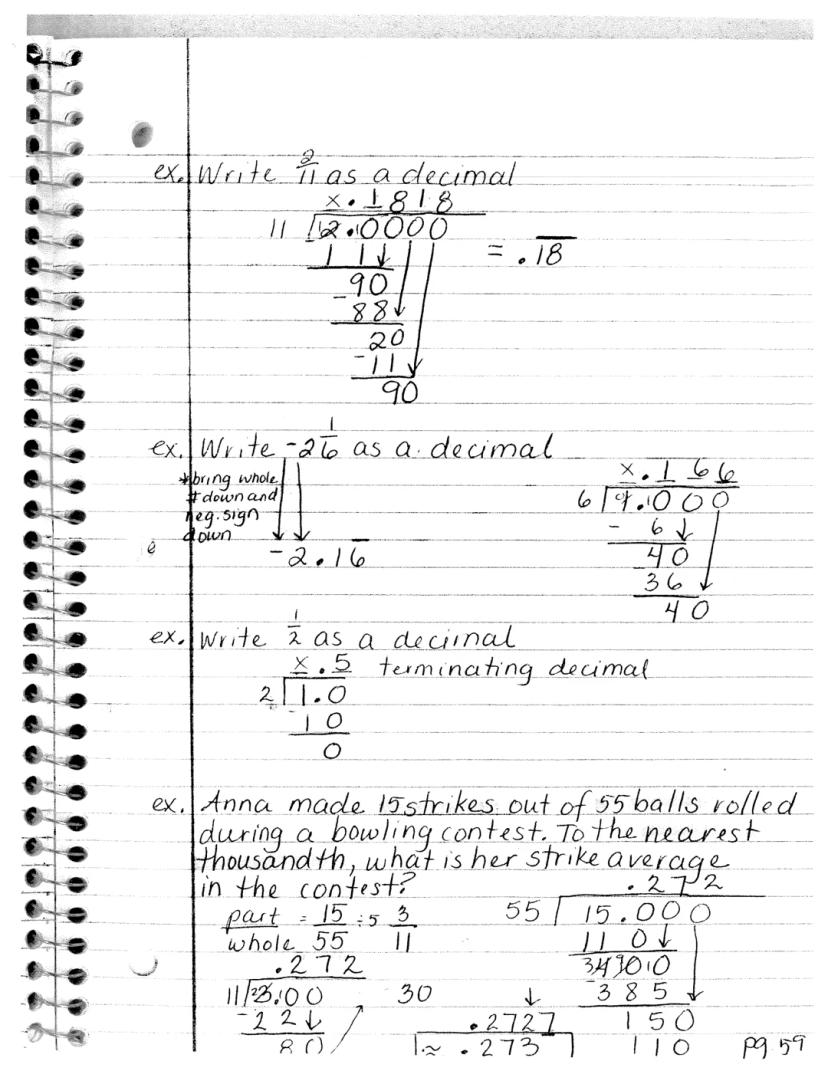 ex. Write 2/11 as a decimal
x.1818
11 12.0000
1 1
= .18
90
- 88
20
- 11
90
ex. Write -2 1/6 as a decimal
*bring whole
# down and
neg. sign
down
-2.16
x.166
6 1.000
- 6
40
36
40
ex. Write 1/2 as a decimal
x.5 terminating decimal
2 1.0
- 10
0
ex. Anna made 15 strikes out of 55 balls rolled
during a bowling contest. To the nearest
thousandth, what is her strike average
in the contest?
.272
part = 15 ÷5 3
whole 55 11
55 15.000
11 0
- 385
150
110
.272
11 3.00
- 22
80
30
.2727
≈ .273
pg. 59